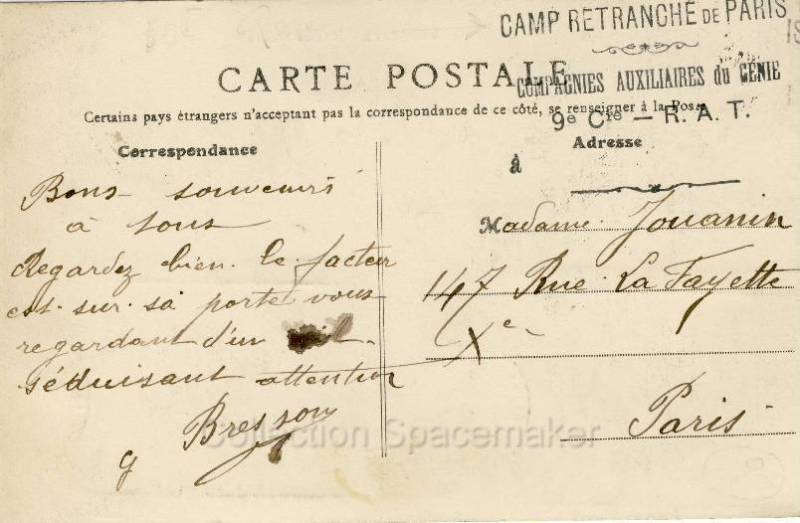 CAMP RETRANCHÉ DE PARIS
CARTE POSTALE
COMPAGNIES AUXILIAIRES du GÉNIE
Certains pays étrangers n'acceptent pas la correspondance de ce côté, se renseigner à la Poste
9e Cie — R. A. T.
Correspondance
Bons souvenirs
à tous
Regardez bien le facteur
est sur sa porte vous
regardant d'un œil
séduisant attention
Bresson
Adresse
à
Madame Jouanin
147 Rue La Fayette
Xe
Paris
Collection Spacemaker